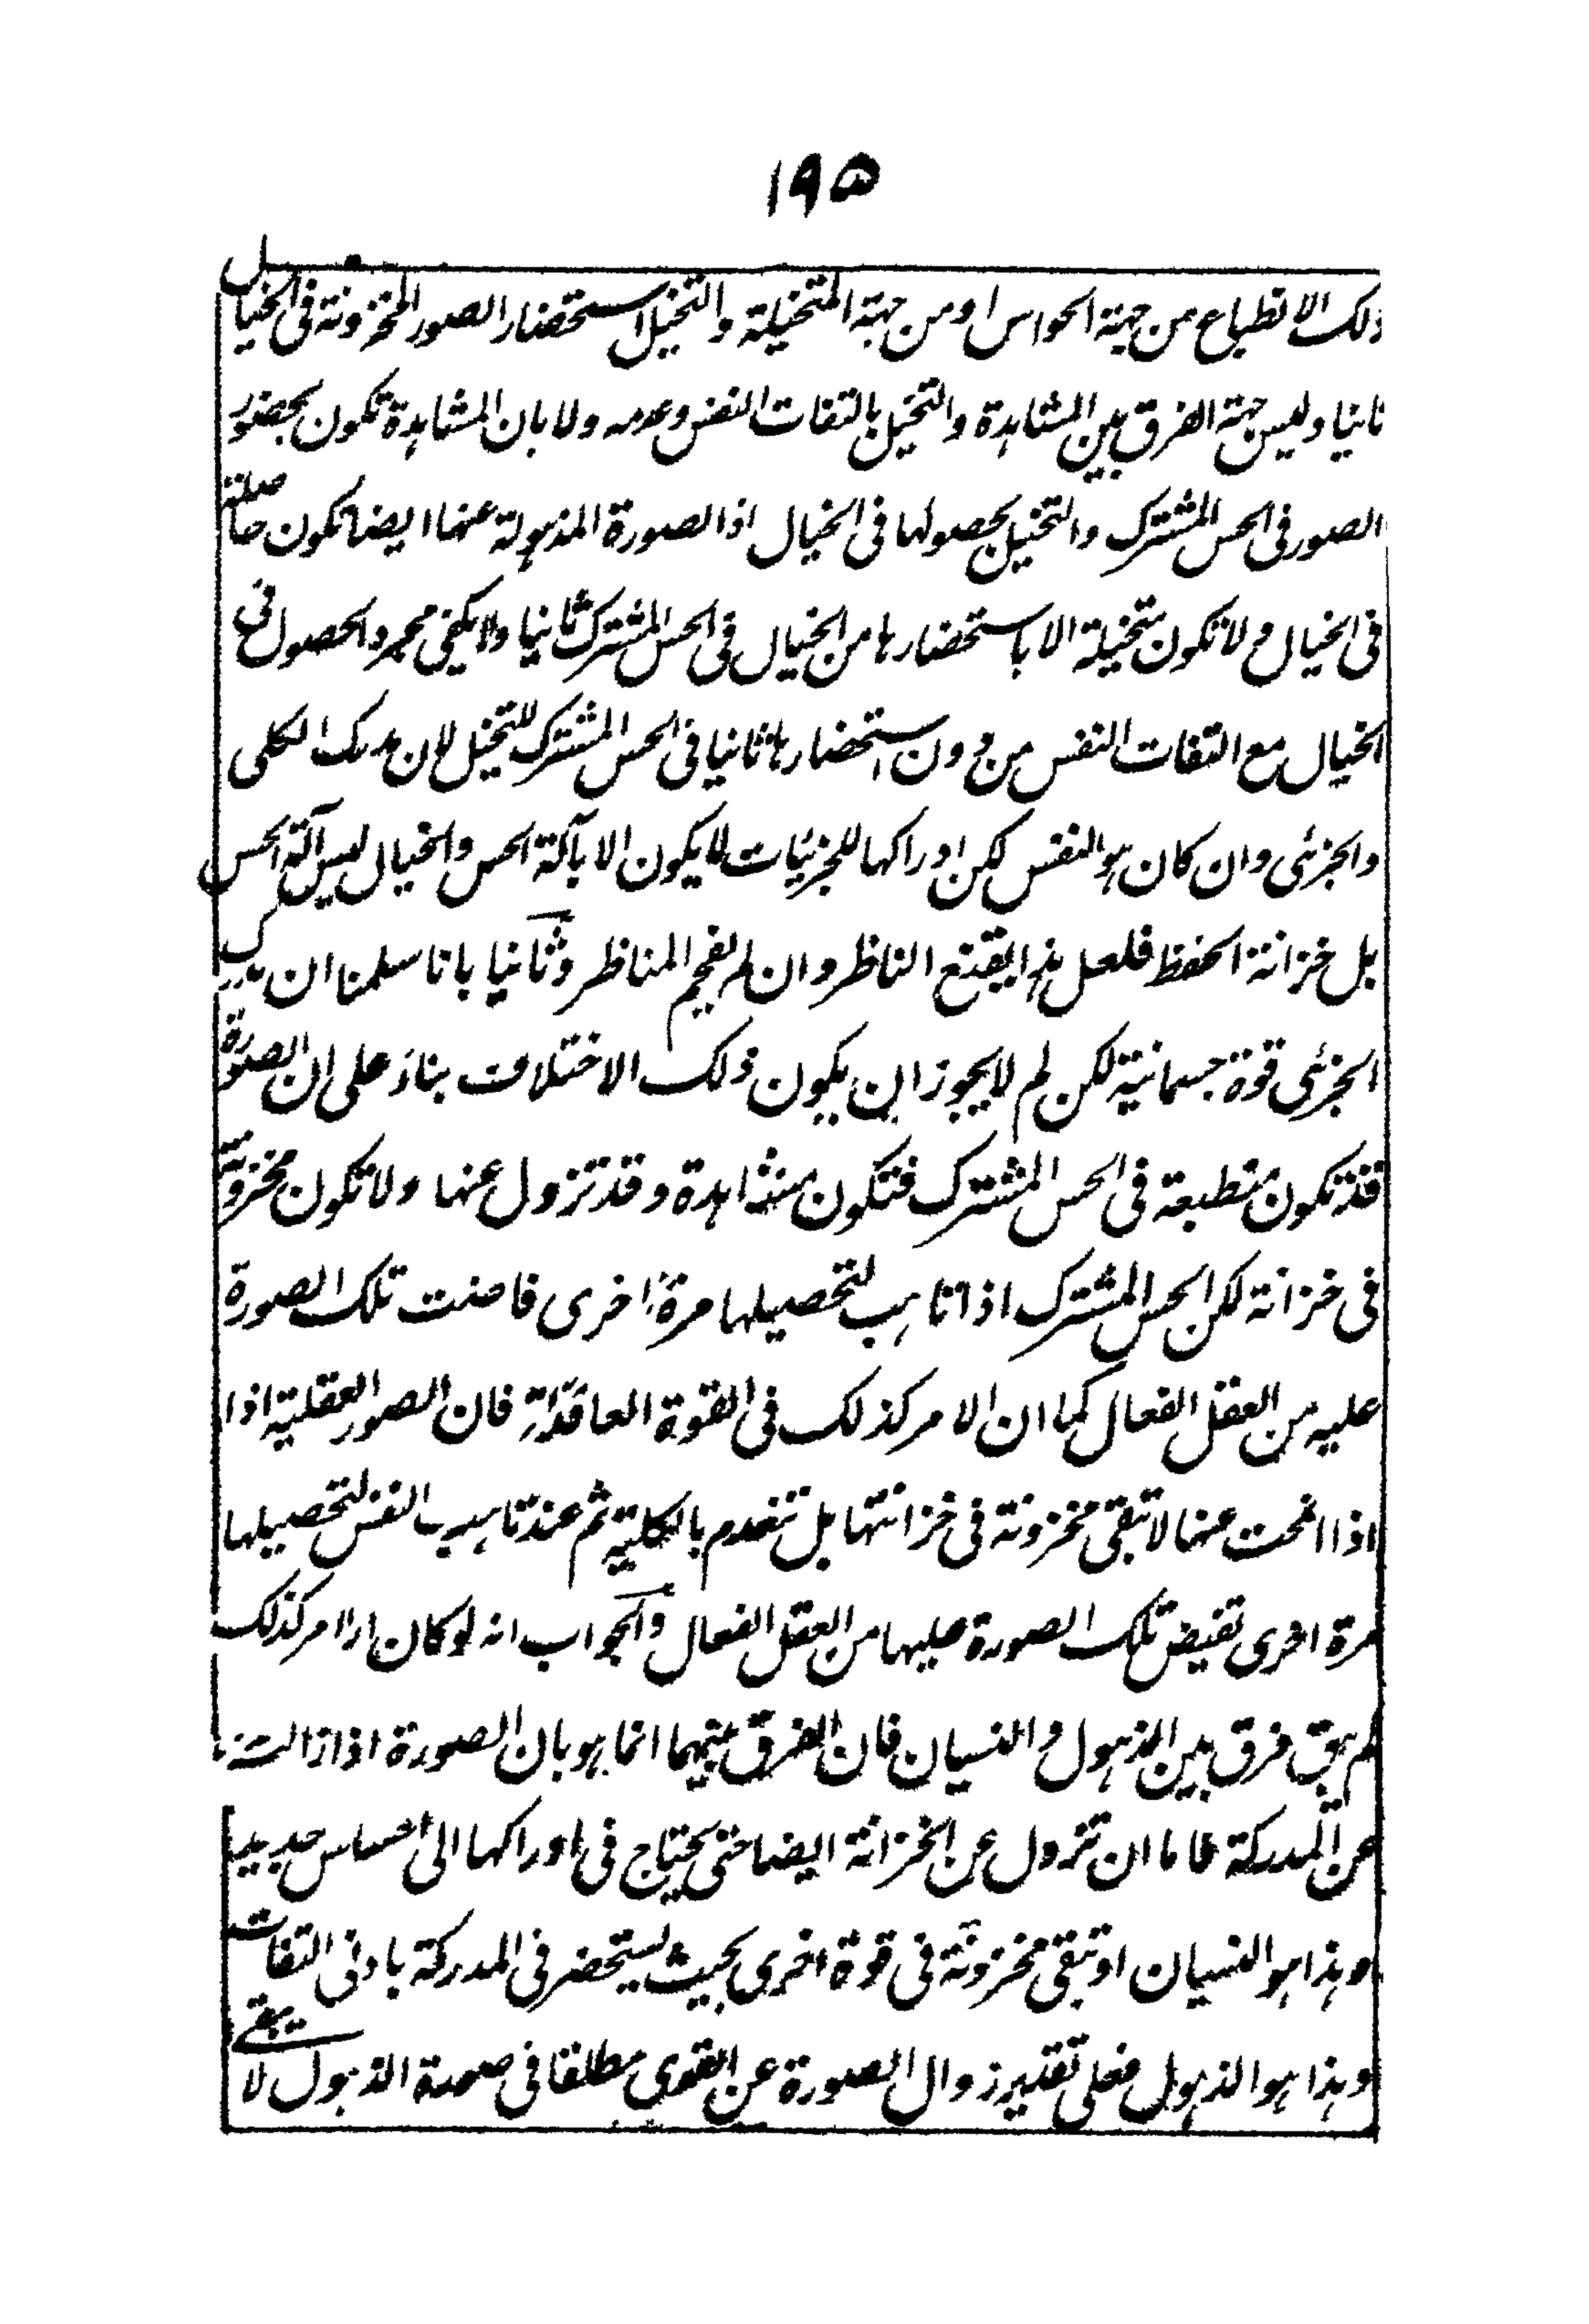 ١٩٥
ذلك الانطباع من جهة الحواس او من جهة المتخيلة والتخيل استحضار الصور المخزونة فى الخيال
ثانيا وليس جهة الفرق بين المشاهدة والتخيل بالتفات النفس وعدمه ولا بان المشاهدة تكون بحضور
الصور فى الحس المشترك والتخيل بحصولها فى الخيال اذ الصورة المذهولة عنها ايضا تكون حاصلة
فى الخيال ولا تكون متخيلة الا باستحضارها من الخيال فى الحس المشترك ثانيا ولا يكفى مجرد الحصول فى
الخيال مع التفات النفس من دون استحضارها ثانيا فى الحس المشترك للتخيل لان مدرك الكلى
والجزئى وان كان هو النفس لكن ادراكها للجزئيات لا يكون الا بآلة الحس والخيال ليس آلة الحس
بل خزانة الحفظ فلعل هذا يقنع الناظر وان لم يفحم المناظر وثانيا بانا سلمنا ان مدرك
الجزئى قوة جسمانية لكن لم لا يجوز ان يكون ذلك الاختلاف بناءً على ان الصورة
قد تكون منطبعة فى الحس المشترك فتكون مشاهدة وقد تزول عنها ولا تكون مخزونة
فى خزانة لكن الحس المشترك اذا تاهب لتحصيلها مرة اخرى فاضت تلك الصورة
عليه من العقل الفعال كما ان الامر كذلك فى القوة العاقلة فان الصور العقلية اذا
اذا انمحت عنها لا تبقى مخزونة فى خزانتها بل تنعدم بالكلية ثم عند تاهب النفس لتحصيلها
مرة اخرى تفيض تلك الصورة عليها من العقل الفعال والجواب انه لو كان الامر كذلك
لم يبق فرق بين الذهول والنسيان فان الفرق بينهما انما هو بان الصورة اذا زالت
عن المدركة فاما ان تزول عن الخزانة ايضا حتى يحتاج فى ادراكها الى احساس جديد
وهذا هو النسيان او تبقى مخزونة فى قوة اخرى بحيث يستحضر فى المدركة بادنى التفات
وهذا هو الذهول فعلى تقدير زوال الصورة عن القوى مطلقا فى صورة الذهول لا يبقے